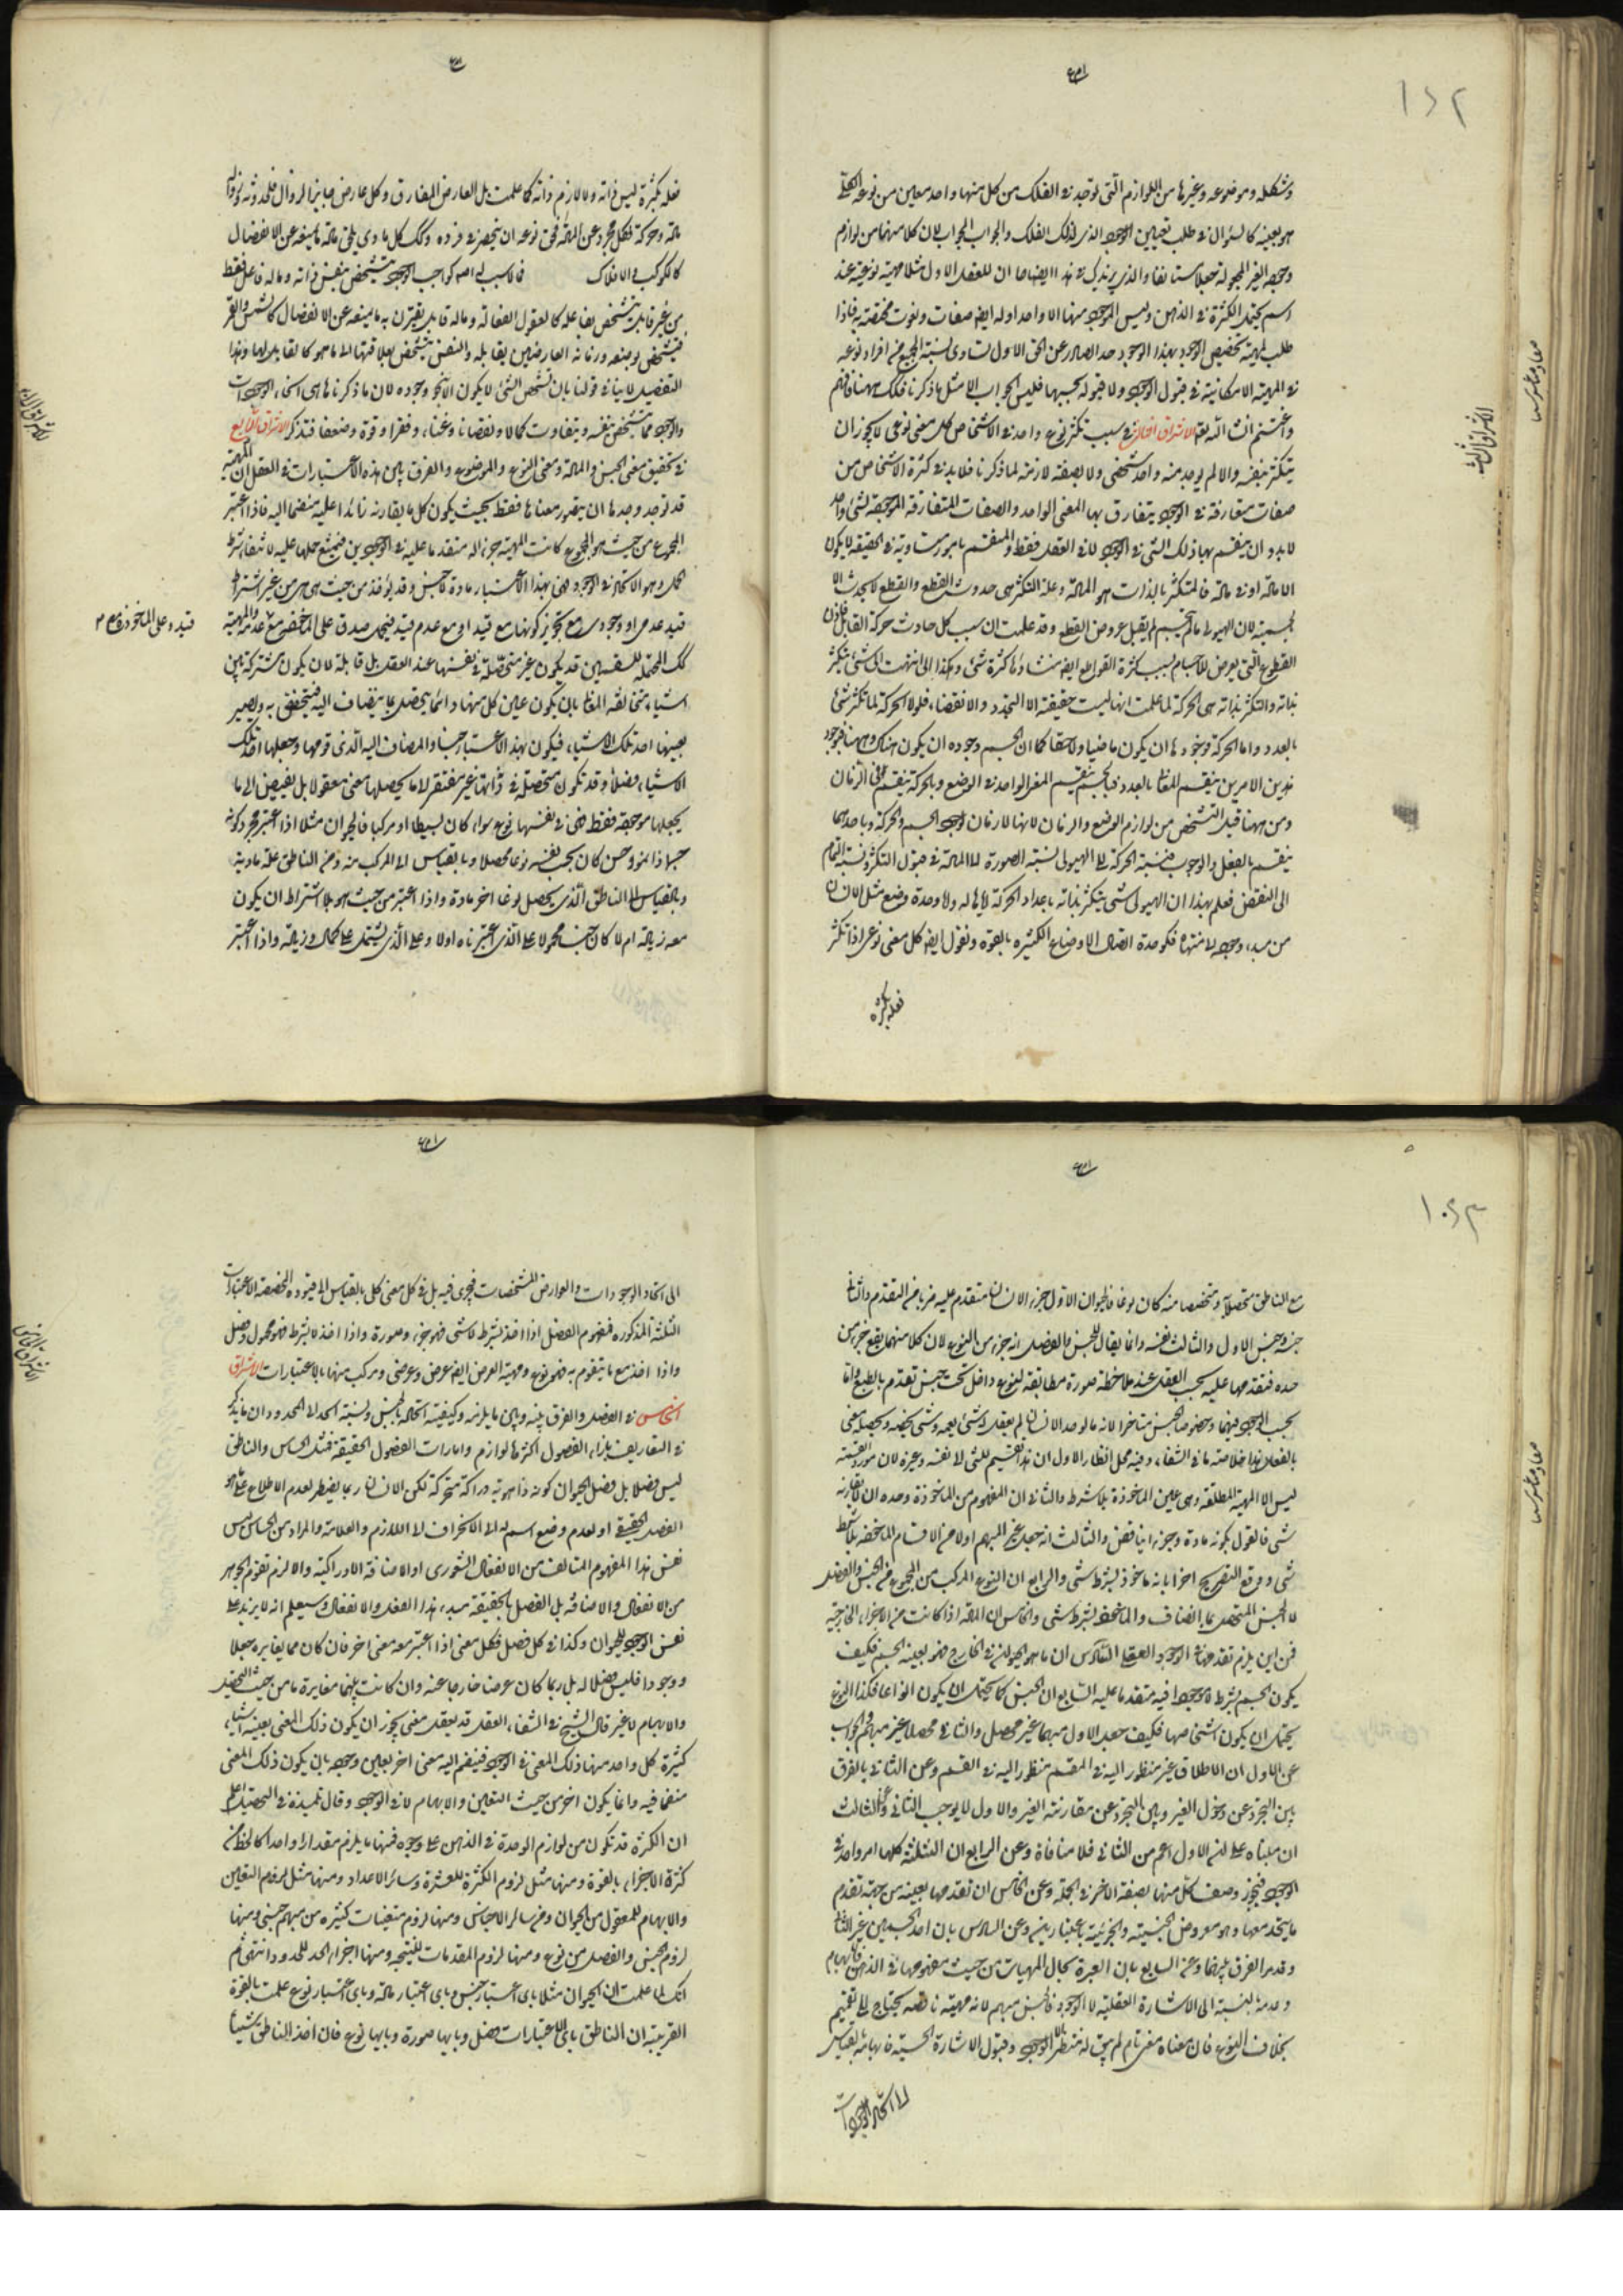 وشكله وموضوعه وغيرها من اللوازم التى توجد فى الفلك من كل منها واحد معين من نوعه الكلى
هو بعينه كالسؤال فى طلب تعيين الوجود الذى لذلك الفلك والجواب الجواب لان كلا منهما من لوازم
اسم يحتمل الكثرة فى الذهن وليس الموجود منها الا واحد اوله ايض صفات ونعوت مختصة به فاذا
طلب لمية تخصيص الوجود بهذا الوجود حد الصادر عن الحق الاول لتساوى نسبة الجميع من افراد نوعه
فى المهية الامكانية فى قبول الوجود ولا قبوله بحسبها فليس الجواب الا مثل ما ذكرنا فلك ههنا فافهم
واغتنم ان شاء الله تعالى الاشراق الثالث فى سبب تكثر نوع واحد فى الاشخاص كل معنى نوعى لا يجوز ان
يتكثر بنفسه والا لم يوجد منه واحد شخصى ولا بصفة لازمة لما ذكرنا فلا بد فى كثرة الاشخاص من
صفات مفارقة فى الوجود يتفارق بها المعنى الواحد والصفات المتفارقة الموجبة لشئ واحد
لا بد وان ينقسم بها ذلك الشئ فى الوجود لا فى العقل فقط والمنقسم بامور متساوية فى الحقيقة لا يكون
الا مادة او فى مادة فالمتكثر بالذات هو المادة وعلة التكثر هى حدوث القطع والقطع لا يحدث الا
لجسمية لان الهيولى ما لم يتجسم لم يقبل عروض القطع وقد علمت ان سبب كل حادث حركة القابل فاذن
القطوع التى يعرض للاجسام بسبب كثرة القواطع ايض منشاؤها كثرة شئ وهكذا الى ان انتهت الى شئ يتكثر
بذاته والمتكثر بذاته هى الحركة لما علمت انها ليست حقيقته الا التجدد والانقضاء فلولا الحركة لما تكثر شئ
بالعدد واما الحركة فوجودها ان يكون ماضيا ولاحقا كما ان الجسم وجوده ان يكون هناك وههنا فبوجود
هذين الامرين ينقسم المعنى بالعدد فبالجسم ينقسم المعنى الواحد فى الوضع وبالحركة ينقسم فى الزمان
ومن ههنا قيل التشخص من لوازم الوضع والزمان لانهما لازمان لوجود الجسم والحركة وباحدهما
ينقسم بالفعل والوجوب فنسبة الحركة الى الهيولى نسبة الصورة الى المادة فى قبول التكثر ونسبة التمام
الى النقص فعلم بهذا ان الهيولى شئ يتكثر بذاته باعداد الحركة لا بماله ولا وحدة وضع مثل الانسان
من مبدء وجوده الى منتهاه فكوحدة اتصال الاوضاع الكثيرة بالقوة ونقول ايض كل معنى نوعى اذا تكثر
فعله بكثرة
فعله بكثرة ليس ذاته ولا لازم ذاته كما علمت بل العارض المفارق وكل عارض جايز الزوال فلحدوثه وزواله
مادة وحركة فكل مجرد عن المادة فحق نوعه ان ينحصر فى فرده وكك كل مادى يلحق مادته ما يمنعه عن الانفصال
كالكوكب فى الافلاك فما لا سبب له اصلا كواجب الوجود يتشخص بنفس ذاته وما له فاعل فقط
من غير قابل يتشخص بفاعله كالعقول الفعالة وما له قابل يقترن به ما يمنعه عن الانفصال كالشمس والقمر
فيتشخص بوضعه وزمانه العارضين بقابله والنفس يتشخص بعلاقتها الى ما هو كالقابل لها وهذا
التفصيل لا ينافى قولنا بان تشخص الشئ لا يكون الا بنحو وجوده لان ما ذكرنا هى انحاء الوجودات
والوجود مما يتشخص بنفسه ويتفاوت كمالا ونقصانا وغنا وفقرا وقوة وضعفا فتذكر الاشراق الرابع
فى تحقيق معنى الجنس والمادة ومعنى النوع والموضوع والفرق بين هذه الاعتبارات فى العقل ان المهية
قد توجد وحدها ان يتصور معناها فقط بحيث يكون كل ما يقارنه زائدا عليه منضما اليه فاذا اعتبر
المجموع من حيث هو المجموع كانت المهية جزءا له متقدما عليه فى الوجودين فيمتنع حملها عليه لانتفاء شرط
الحمل وهو الاتحاد فى الوجود فهى بهذا الاعتبار مادة لا جنس وقد يؤخذ من حيث هى هى من غير اشتراط
قيد عدمى او وجودى مع تجويز كونها مع قيد او مع عدم قيد فيحتمل صدق على الماخوذ مع عدمه والمهية
كك المحتملة للقسمين قد يكون غير متحصلة فى نفسها عند العقل بل قابلة لان يكون مشتركة بين
اشياء متخالفة المعانى بان يكون عين كل منها دائما يتحصل بما ينضاف اليه فيتحقق به ويصير
بعينها احد تلك الاشياء فيكون بهذا الاعتبار جنسا والمضاف اليه الذى قومها وجعلها احد تلك
الاشياء فصلا وقد تكون متحصلة فى ذاتها غير مفتقر الى ما يحصلها معنى معقولا بل يفتقر الى ما
يجعلها موجودة فقط فهى فى نفسها نوع سواء كان بسيطا او مركبا فالحيوان مثلا اذا اعتبر مجرد كونه
جسما ذا نمو وحس كان بحسب نفسه نوعا محصلا وبالقياس الى المركب منه ومن الناطق علة مادية
وبالقياس الى الناطق الذى يحصل نوعا اخر مادة واذا اعتبر من حيث هو بلا اشتراط ان يكون
معه زيادة ام لا كان جنسا محمولا على الذى اعتبرناه اولا وعلى الذى يشتمل على كمال وزيادة واذا اعتبر
مع الناطق متحصلا ومتخصصا منه كان نوعا فالحيوان الاول جزء الانسان متقدم عليه ضربا من التقدم والثانى
جزءه جنس الاول والثالث نفسه وانما يقال للجنس والفصل انه جزء من النوع لان كلا منهما يقع جزءا من
حده فتقدمهما عليه بحسب العقل عند ملاحظة صورة مطابقة لنوع داخل تحت جنس تقدم بالطبع واما
بحسب الوجود فيهما وخصوصا الجنس متاخر الانه ما لم يوجد الانسان لم يعقل له شئ يعمه وشئ يخصه ويحصله معنى
بالفعل هذا خلاصة ما فى الشفاء وفيه محل انظار الاول ان هذا تقسيم للشئ الى نفسه وغيره لان مورد القسمة
ليس الا المهية المطلقة وهى عين الماخوذة بلا شرط والثانى ان المفهوم من الماخوذة وحده ان لا يقارنه
شئ فالقول بكونه مادة وجزءا يناقض والثالث انه جعل غير المبهم اولا من اقسام الماخوذ بلا شرط
شئ ووقع التصريح اخرا بانه ماخوذ بشرط شئ والرابع ان النوع المركب من المجموع من الجنس والفصل
لا الجنس المتحصل بما انضاف والماخوذ بشرط شئ والخامس ان المادة اذا كانت من الاجزاء الخارجية
فمن اين يلزم تقدمها فى الوجود العقلى السادس ان ما هو الهيولى فى الخارج فهو بعينه الجسم فكيف
يكون الجسم بشرط لا وجودا فيه متقدما عليه السابع ان الجنس كما يحتمل ان يكون انواعا فكذا النوع
يحتمل ان يكون اشخاصا فكيف جعل الاول مبهما غير محصل والثانى محصلا غير مبهم والجواب
عن الاول ان الاطلاق غير منظور اليه فى المقسم منظور اليه فى القسم وعن الثانى بالفرق
بين التجرد عن دخول الغير وبين التجرد عن مقارنة الغير والاول لا يوجب الثانى وعن الثالث
ان مبناه على ان الاول اعم من الثانى فلا منافاة وعن الرابع ان الثلثة كلها امر واحد فى
الوجود فيجوز وصف كل منها بصفة الاخر فى الجملة وعن الخامس ان تقدمها بعينه من جهة تقدم
ما يتحد معها وهو معروض الجنسية والجزئية باعتبارين وعن السادس بان احد الجسمين غير الثانى
وقد مر الفرق بينهما وعن السابع بان العبرة بحال المهيات من حيث مفهوماتها فى الذهن فابهام
وعدمه بالنسبة الى الاشارة العقلية لا الوجود فالجنس مبهم لانه مهية ناقصة يحتاج الى تتميم
بخلاف النوع فان معناه معنى تام لم يبق له منتظر الا الوجود وقبول الاشارة الحسية فابهامه بالقياس
الى اتحاد الوجودات
الى اتحاد الوجودات والعوارض المشخصات فيجرى فيه بل فى كل معنى كلى بالقياس الى قيوده المخصصة الاعتبارات
الثلثة المذكورة فمفهوم الفصل اذا اخذ بشرط لا شئ فهو جزء وصورة واذا اخذ لا بشرط فهو محمول وفصل
واذا اخذ مع ما يتقوم به فهو نوع ومهية العرض ايض عرض وعرضى ومركب منهما بالاعتبارات الاشراق
الخامس فى الفصل والفرق بينه وبين ما يلزمه وكيفية اتحاده بالجنس ونسبة الحد الى المحدود ان ما يذكر
فى التعاريف بازاء الفصول اكثرها لوازم وامارات الفصول الحقيقة فمثل الحساس والناطق
ليس فصلا بل فصل الحيوان كونه ذا هوية دراكة متحركة لكن الانسان ربما يضطر لعدم الاطلاع على
الفصل الحقيقى او لعدم وضع اسم له الى الانحراف الى اللازم والعلامة والمراد من الحساس ليس
نفس هذا المفهوم المتالف من الانفعال الشعورى او الاضافة الادراكية والا لزم تقوم الجوهر
من الانفعال والاضافة بل الفصل بالحقيقة مبدء هذا الفعل والانفعال وسيعلم انه لا يزيد على
نفس الوجود للحيوان وكذا فى كل فصل فكل معنى اذا اعتبر معه معنى اخر فان كان مما يغايره جعلا
ووجودا فليس فصلا له بل ربما كان عرضا خارجا عنه وان كانت بينهما مغايرة ما من حيث التحصيل
والابهام لا غير قال الشيخ فى الشفاء العقل قد يعقل معنى يجوز ان يكون ذلك المعنى بعينه اشياء
كثيرة كل واحد منها ذلك المعنى فى الوجود فينضم اليه معنى اخر يعين وجوده بان يكون ذلك المعنى
متضمنا فيه وانما يكون اخر من حيث التعين والابهام لا فى الوجود وقال تلميذه فى التحصيل
ان الكثرة قد تكون من لوازم الوحدة فى الذهن على وجوه فمنها ما يلزم مقدارا واحدا كالخط من
كثرة الاجزاء بالقوة ومنها مثل لزوم الكثرة للعشرة وسائر الاعداد ومنها مثل لزوم التعين
والابهام للمعقول من الحيوان ومن سائر الاجناس ومنها لزوم متعينات كثيرة من مبهم جنسى ومنها
لزوم الجنس والفصل من نوع ومنها لزوم المقدمات للنتيجة ومنها اجزاء الحد للمحدود انتهى ثم
انك لما علمت ان الحيوان مثلا باى اعتبار جنس وباى اعتبار مادة وباى اعتبار نوع علمت بالقوة
القريبة ان الناطق باى الاعتبارات فصل وبايها صورة وبايها نوع فان اخذ الناطق شيئا
الاشراق الثالث
الاشراق الرابع
الاشراق الخامس